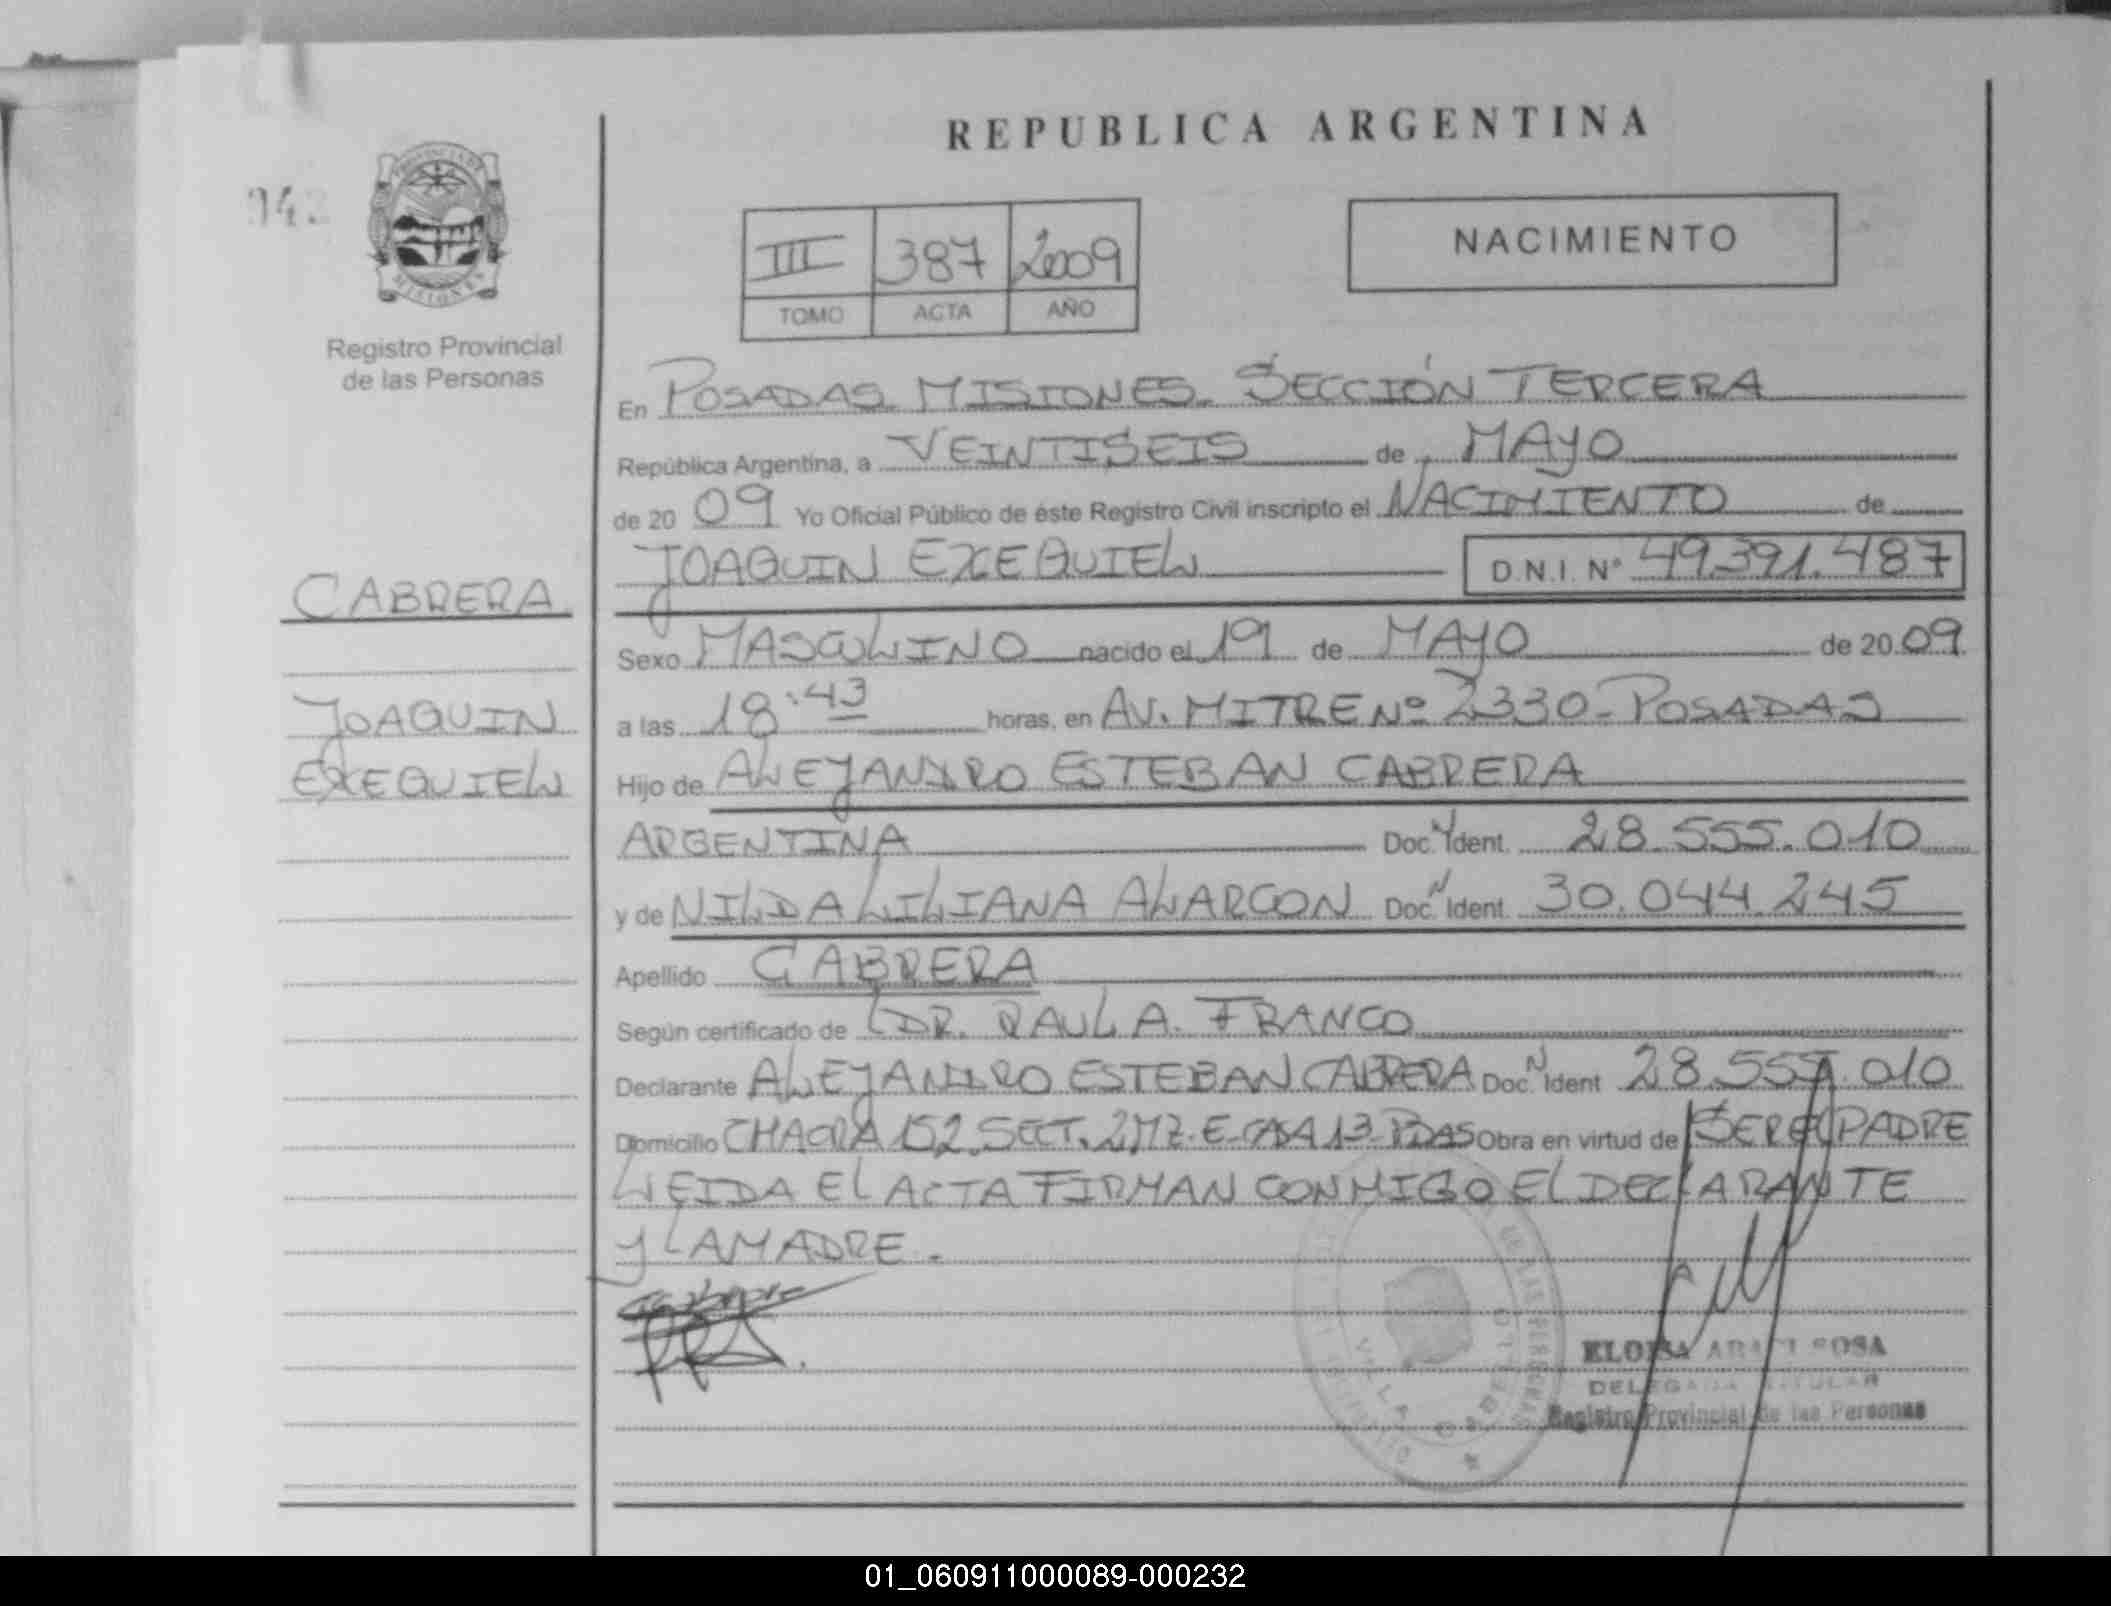 REPUBLICA ARGENTINA
PROVINCIA DE
MISIONES
Registro Provincial
de las Personas
III 387 2009
TOMO ACTA AÑO
NACIMIENTO
En POSADAS. MISIONES. SECCIÓN TERCERA
República Argentina, a VEINTISEIS de MAYO
de 20 09 Yo Oficial Público de éste Registro Civil inscripto el NACIMIENTO de
JOAQUIN EXEQUIEL D.N.I. N° 49.391.487
CABRERA
JOAQUIN
EXEQUIEL
Sexo MASCULINO nacido el 19 de MAYO de 20 09
a las 18:43 horas, en AV. MITRE Nº 2330 - POSADAS
Hijo de ALEJANDRO ESTEBAN CABRERA
ARGENTINA Doc. N Ident. 28.555.010
y de NILDA LILIANA ALARCON Doc. N Ident. 30.044.245
Apellido CABRERA
Según certificado de DR. RAUL A. FRANCO
Declarante ALEJANDRO ESTEBAN CABRERA Doc. N Ident 28.555.010
Domicilio CHACRA 152. SECT. 2 MZ. E- CASA 13- PDAS Obra en virtud de SER EL PADRE
LEIDA EL ACTA FIRMAN CONMIGO EL DECLARANTE
Y LA MADRE.
VILLA CABELLO
ELOISA SOSA
DELEGADA TITULAR
Registro Provincial de las Personas
01_060911000089-000232